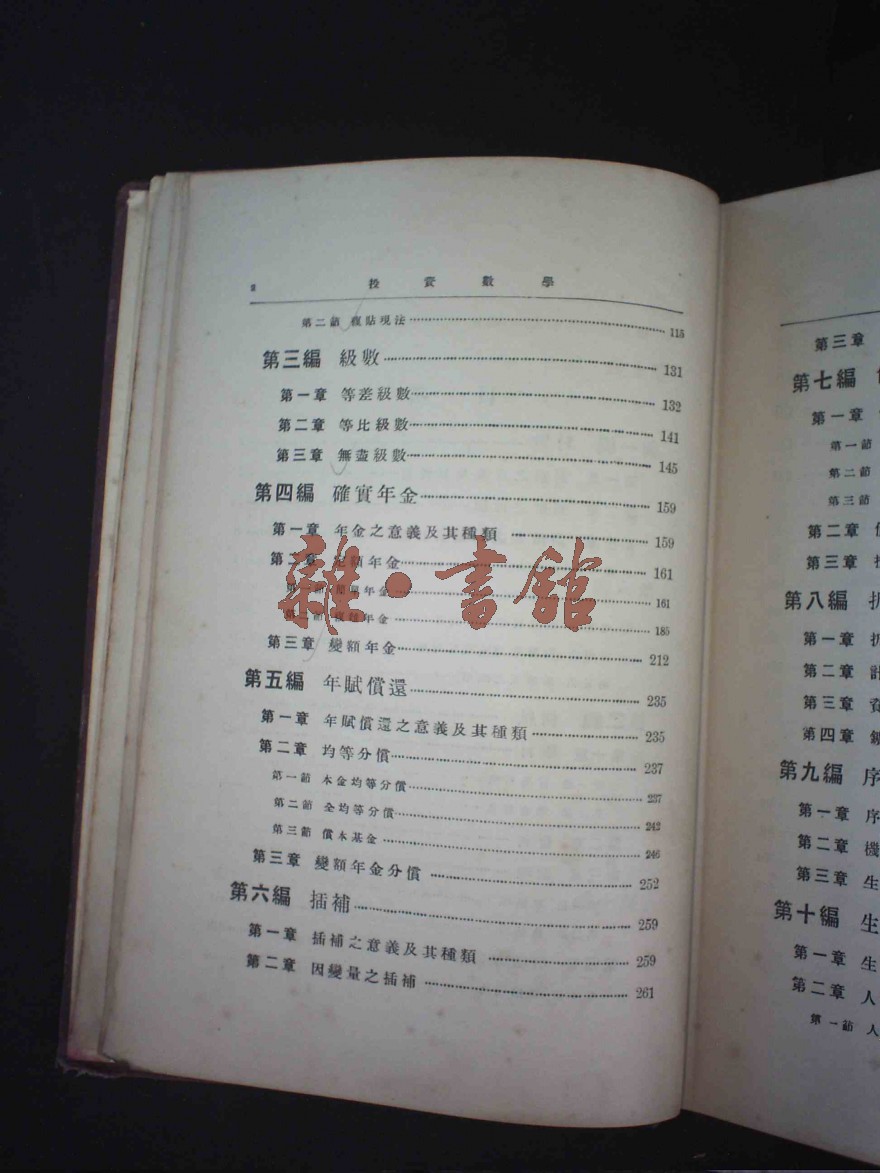 2 投資數學
第二節 複貼現法 115
第三編 級數 131
第一章 等差級數 132
第二章 等比級數 141
第三章 無盡級數 145
第四編 確實年金 159
第一章 年金之意義及其種類 159
第二章 定額年金 161
第一節 年金 161
第二節 年金 185
第三章 變額年金 212
第五編 年賦償還 235
第一章 年賦償還之意義及其種類 235
第二章 均等分償 237
第一節 本金均等分償 237
第二節 全均等分償 242
第三節 償本基金 246
第三章 變額年金分償 252
第六編 插補 259
第一章 插補之意義及其種類 259
第二章 因變量之插補 261
雜·書館
第三章
第七編
第一章
第一節
第二節
第三節
第二章
第三章
第八編 折
第一章 折
第二章 計
第三章 資
第四章 鑛
第九編 序
第一章 序
第二章 機
第三章 生
第十編 生
第一章 生
第二章 人
第一節 人